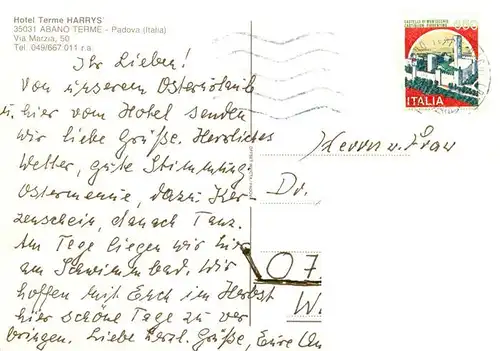 Hotel Terme HARRYS'
35031 ABANO TERME - Padova (Italia)
Via Marzia, 50
Tel. 049/667.011 r.a.
Ihr Lieben!
Von unserem Osterurlaub
u. hier vom Hotel senden
wir liebe Grüße. Herrliches
Wetter, gute Stimmung.
Ostermenue, dazu Ker-
zenschein, danach Tanz.
Am Tage liegen wir hier
am Schwimmbad. Wir
hoffen mit Euch im Herbst
hier schöne Tage zu ver
bringen. Liebe herzl. Grüße, Eure
CASTELLO DI MONTECCHIO
CASTIGLION FIORENTINO
650
ITALIA
Herrn u. Frau
Dr.
O 7
W